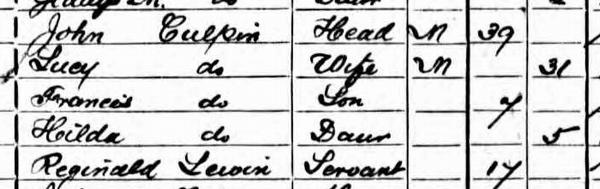 John Culpin Head M 39
Lucy do Wife M 31
Francis do Son 7
Hilda do Daur 5
Reginald Lewin Servant 17